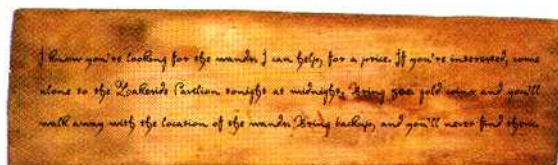 I know you're looking for the wands. I can help, for a price. If you're interested, come
alone to the Lakeside Pavilion tonight at midnight. Bring 500 gold coins and you'll
walk away with the location of the wands. Bring backup, and you'll never find them.